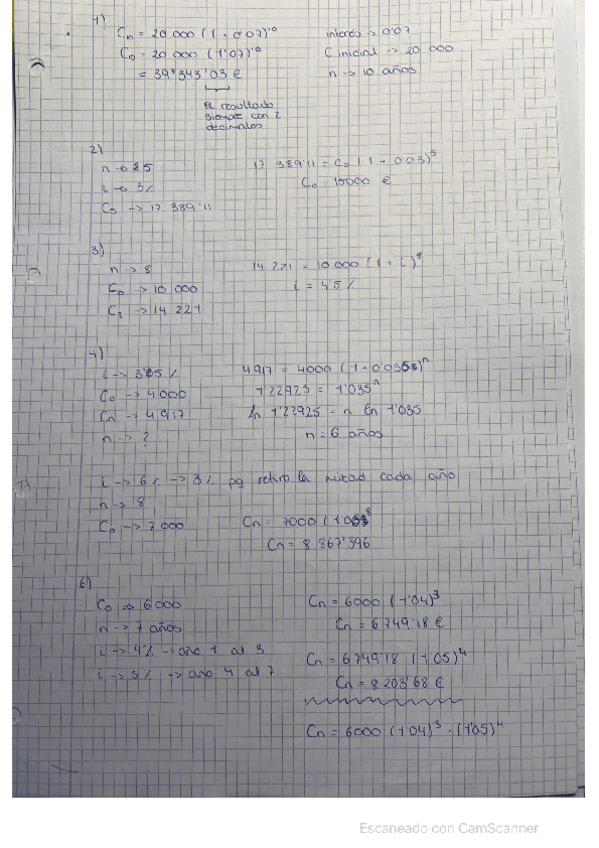 1)
C₁₀ = 20 000 (1 + 0'07)¹⁰ interés -> 0'07
C₁₀ = 20 000 (1'07)¹⁰ C inicial -> 20 000
= 39'343'03 € n -> 10 años
El resultado
siempre con 2
decimales
2)
n -> 5 17 389'11 = C₀ (1 + 0'03)⁵
i -> 3% C₀ = 15000 €
C₅ -> 17 389'11
3)
n -> 8 14 221 = 10 000 (1 + i)⁸
C₀ -> 10 000 i = 4'5%
C₈ -> 14 221
4)
i -> 3'5% 4917 = 4000 (1 + 0'035)ⁿ
C₀ -> 4000 1'22925 = 1'035ⁿ
Cn -> 4917 ln 1'22925 = n ln 1'035
n -> ? n = 6 años
i -> 6% -> 3% pq retiro la mitad cada año
n -> 8
C₀ -> 7000 Cn = 7000 (1'03)⁸
Cn = 8 867'396
6)
C₀ -> 6000 Cn = 6000 (1'04)³
n -> 7 años Cn = 6749'18 €
i -> 4% -> año 1 al 3 Cn = 6749'18 (1'05)⁴
i -> 5% -> año 4 al 7 Cn = 8203'68 €
Cn = 6000 (1'04)³ · (1'05)⁴
Escaneado con CamScanner